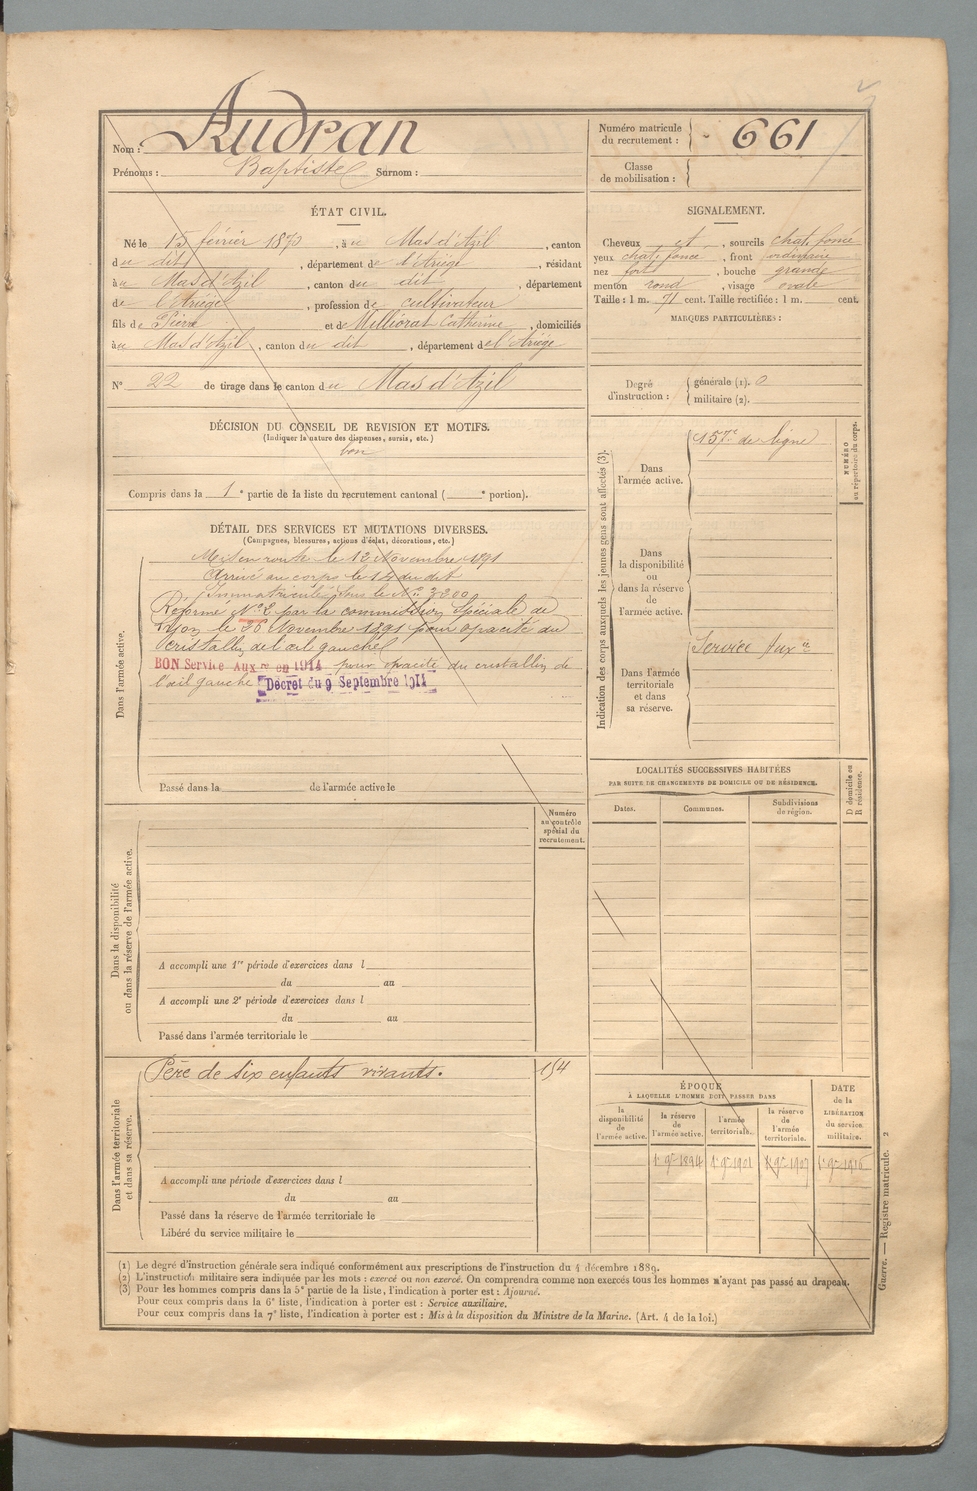 Nom : Audran
Prénoms : Baptiste Surnom :
Numéro matricule du recrutement : 661
Classe de mobilisation :
ÉTAT CIVIL.
Né le 15 février 1870, à u Mas d'Azil, canton
du dit, département de l'Ariège, résidant
à u Mas d'Azil, canton du dit, département
de l'Ariège, profession de cultivateur
fils de Pierre et de Melliorat Catherine, domiciliés
à u Mas d'Azil, canton du dit, département de l'Ariège
N° 22 de tirage dans le canton du Mas d'Azil
SIGNALEMENT.
Cheveux et, sourcils chat. foncé
yeux chat. foncé, front ordinaire
nez fort, bouche grande
menton rond, visage ovale
Taille : 1 m. 71 cent. Taille rectifiée : 1 m. cent.
MARQUES PARTICULIÈRES :
Degré d'instruction : générale (1). 0
militaire (2).
DÉCISION DU CONSEIL DE REVISION ET MOTIFS.
(Indiquer la nature des dispenses, sursis, etc.)
bon
Compris dans la 1e partie de la liste du recrutement cantonal ( e portion).
DÉTAIL DES SERVICES ET MUTATIONS DIVERSES.
(Campagnes, blessures, actions d'éclat, décorations, etc.)
Dans l'armée active.
Mis en route le 12 Novembre 1891
Arrivé au corps le 14 du dit
Immatriculé sous le N° 3200
Réformé N° 2 par la commission spéciale de
Lyon le 26 Novembre 1891 pour opacité du
cristallin de l'œil gauche
BON Service Auxre en 1914 pour opacité du cristallin de
l'œil gauche Décret du 9 Septembre 1914
Passé dans la de l'armée active le
Indication des corps auxquels les jeunes gens sont affectés (3).
Dans l'armée active.
157e de ligne
NUMÉRO au répertoire du corps.
Dans la disponibilité ou dans la réserve de l'armée active.
Dans l'armée territoriale et dans sa réserve.
Service Auxre
LOCALITÉS SUCCESSIVES HABITÉES
PAR SUITE DE CHANGEMENTS DE DOMICILE OU DE RÉSIDENCE.
Dates. Communes. Subdivisions de région.
D domicile ou R résidence.
Numéro au contrôle spécial du recrutement.
Dans la disponibilité ou dans la réserve de l'armée active.
A accompli une 1re période d'exercices dans l
du au
A accompli une 2e période d'exercices dans l
du au
Passé dans l'armée territoriale le
Dans l'armée territoriale et dans sa réserve.
Père de six enfants vivants. 154
A accompli une période d'exercices dans l
du au
Passé dans la réserve de l'armée territoriale le
Libéré du service militaire le
ÉPOQUE
À LAQUELLE L'HOMME DOIT PASSER DANS
la disponibilité de l'armée active.
la réserve de l'armée active.
l'armée territoriale.
la réserve de l'armée territoriale.
DATE de la LIBÉRATION du service militaire.
1er 9bre 1894 1er 9bre 1901 1er 9bre 1907 1er 9bre 1916
(1) Le degré d'instruction générale sera indiqué conformément aux prescriptions de l'instruction du 4 décembre 1889.
(2) L'instruction militaire sera indiquée par les mots : exercé ou non exercé. On comprendra comme non exercés tous les hommes n'ayant pas passé au drapeau.
(3) Pour les hommes compris dans la 5e partie de la liste, l'indication à porter est : Ajourné.
Pour ceux compris dans la 6e liste, l'indication à porter est : Service auxiliaire.
Pour ceux compris dans la 7e liste, l'indication à porter est : Mis à la disposition du Ministre de la Marine. (Art. 4 de la loi.)
Guerre. — Registre matricule. 2